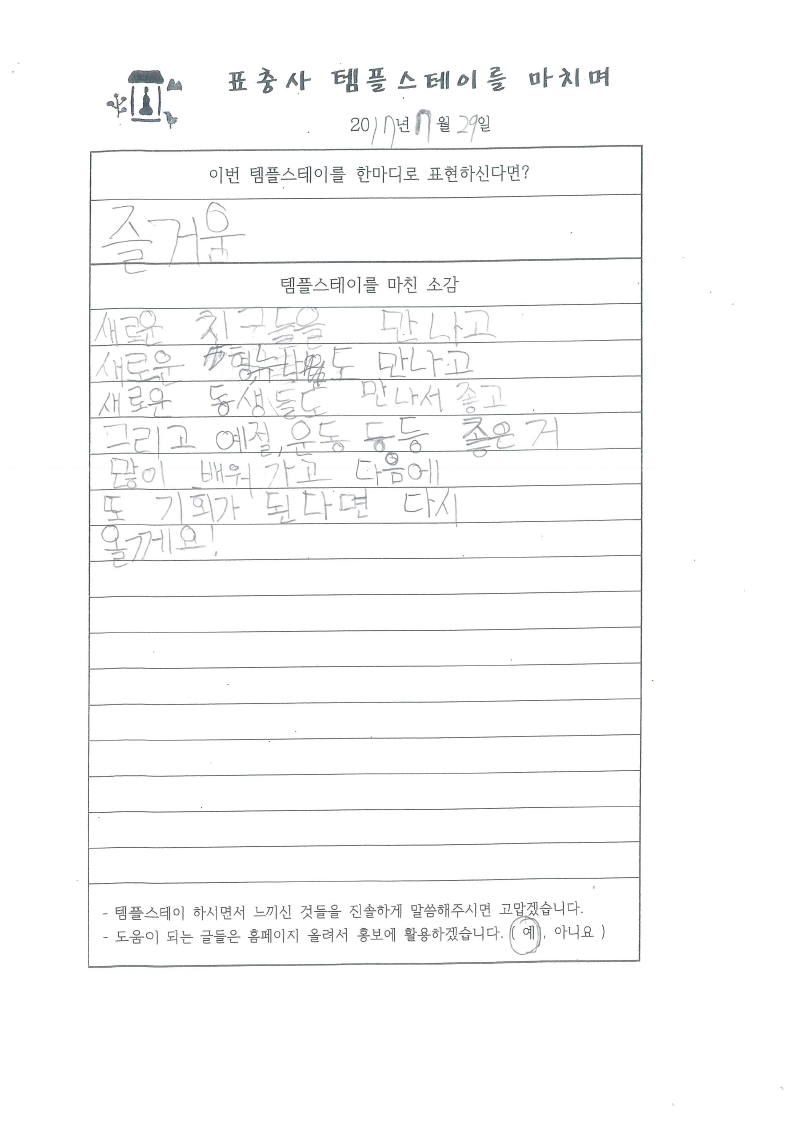 표충사 템플스테이를 마치며
2017년 7월 29일
이번 템플스테이를 한마디로 표현하신다면?
즐거움
템플스테이를 마친 소감
새로운 친구들을 만나고
새로운 형누나도 만나고
새로운 동생들도 만나서 좋고
그리고 예절, 운동 등등 좋은 거
많이 배워 가고 다음에
또 기회가 된다면 다시
올께요!
- 템플스테이 하시면서 느끼신 것들을 진솔하게 말씀해주시면 고맙겠습니다.
- 도움이 되는 글들은 홈페이지 올려서 홍보에 활용하겠습니다. ( 예 , 아니요 )